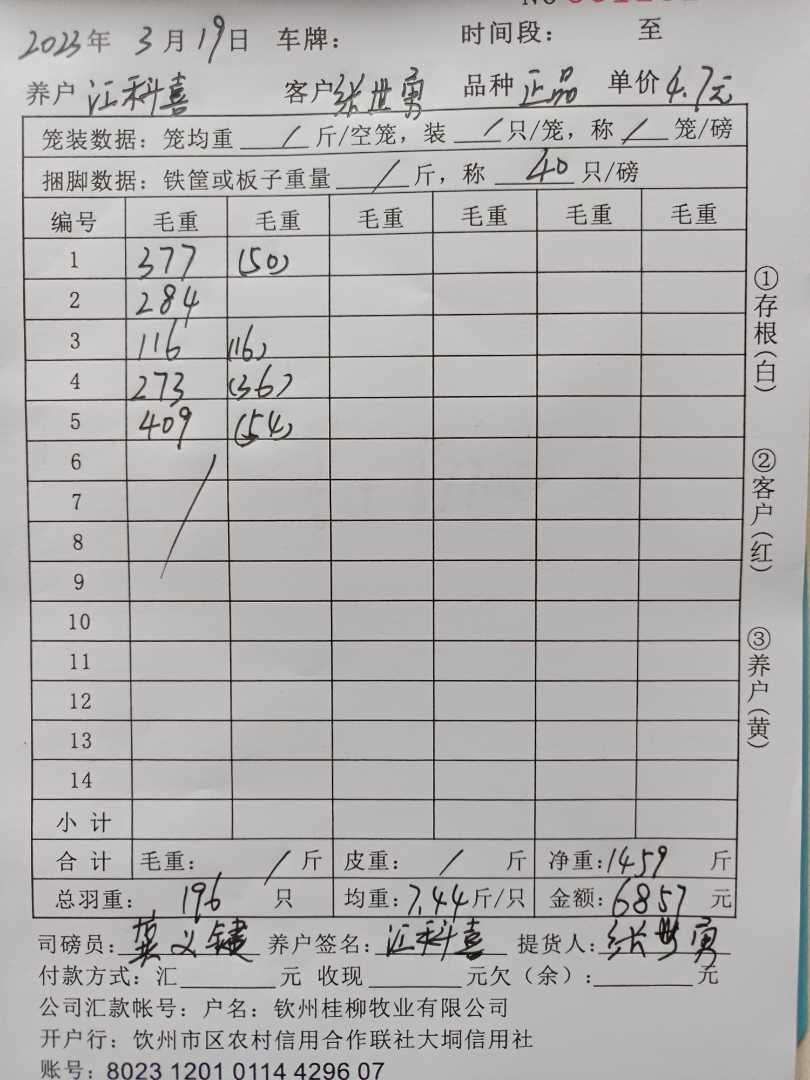 2023年 3月19日 车牌： 时间段： 至
养户 江科喜 客户 张世勇 品种 正品 单价 4.7元
笼装数据：笼均重 / 斤/空笼，装 / 只/笼，称 / 笼/磅
捆脚数据：铁筐或板子重量 / 斤，称 40 只/磅
编号 毛重 毛重 毛重 毛重 毛重 毛重
1 377 (50)
2 284
3 116 (16)
4 273 (36)
5 409 (54)
6
7
8
9
10
11
12
13
14
小计
合计 毛重： / 斤 皮重： / 斤 净重：1459 斤
总羽重： 196 只 均重：7.44斤/只 金额：6857 元
司磅员：莫义键 养户签名：江科喜 提货人：张世勇
付款方式：汇 元 收现 元欠（余）： 元
公司汇款帐号：户名：钦州桂柳牧业有限公司
开户行：饮州市区农村信用合作联社大垌信用社
账号：8023 1201 0114 4296 07
①存根（白）
②客户（红）
③养户（黄）